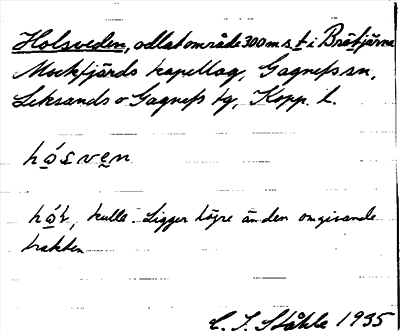 Holsveden, odlat område 300 m s. t. i Bråtjärna
Mockfjärds kapellag, Gagnefs sn,
Leksands o Gagnefs tg, Kopp. l.
hósven
hół, kulle. Ligger högre än den omgivande
trakten
C. I. Ståhle 1935